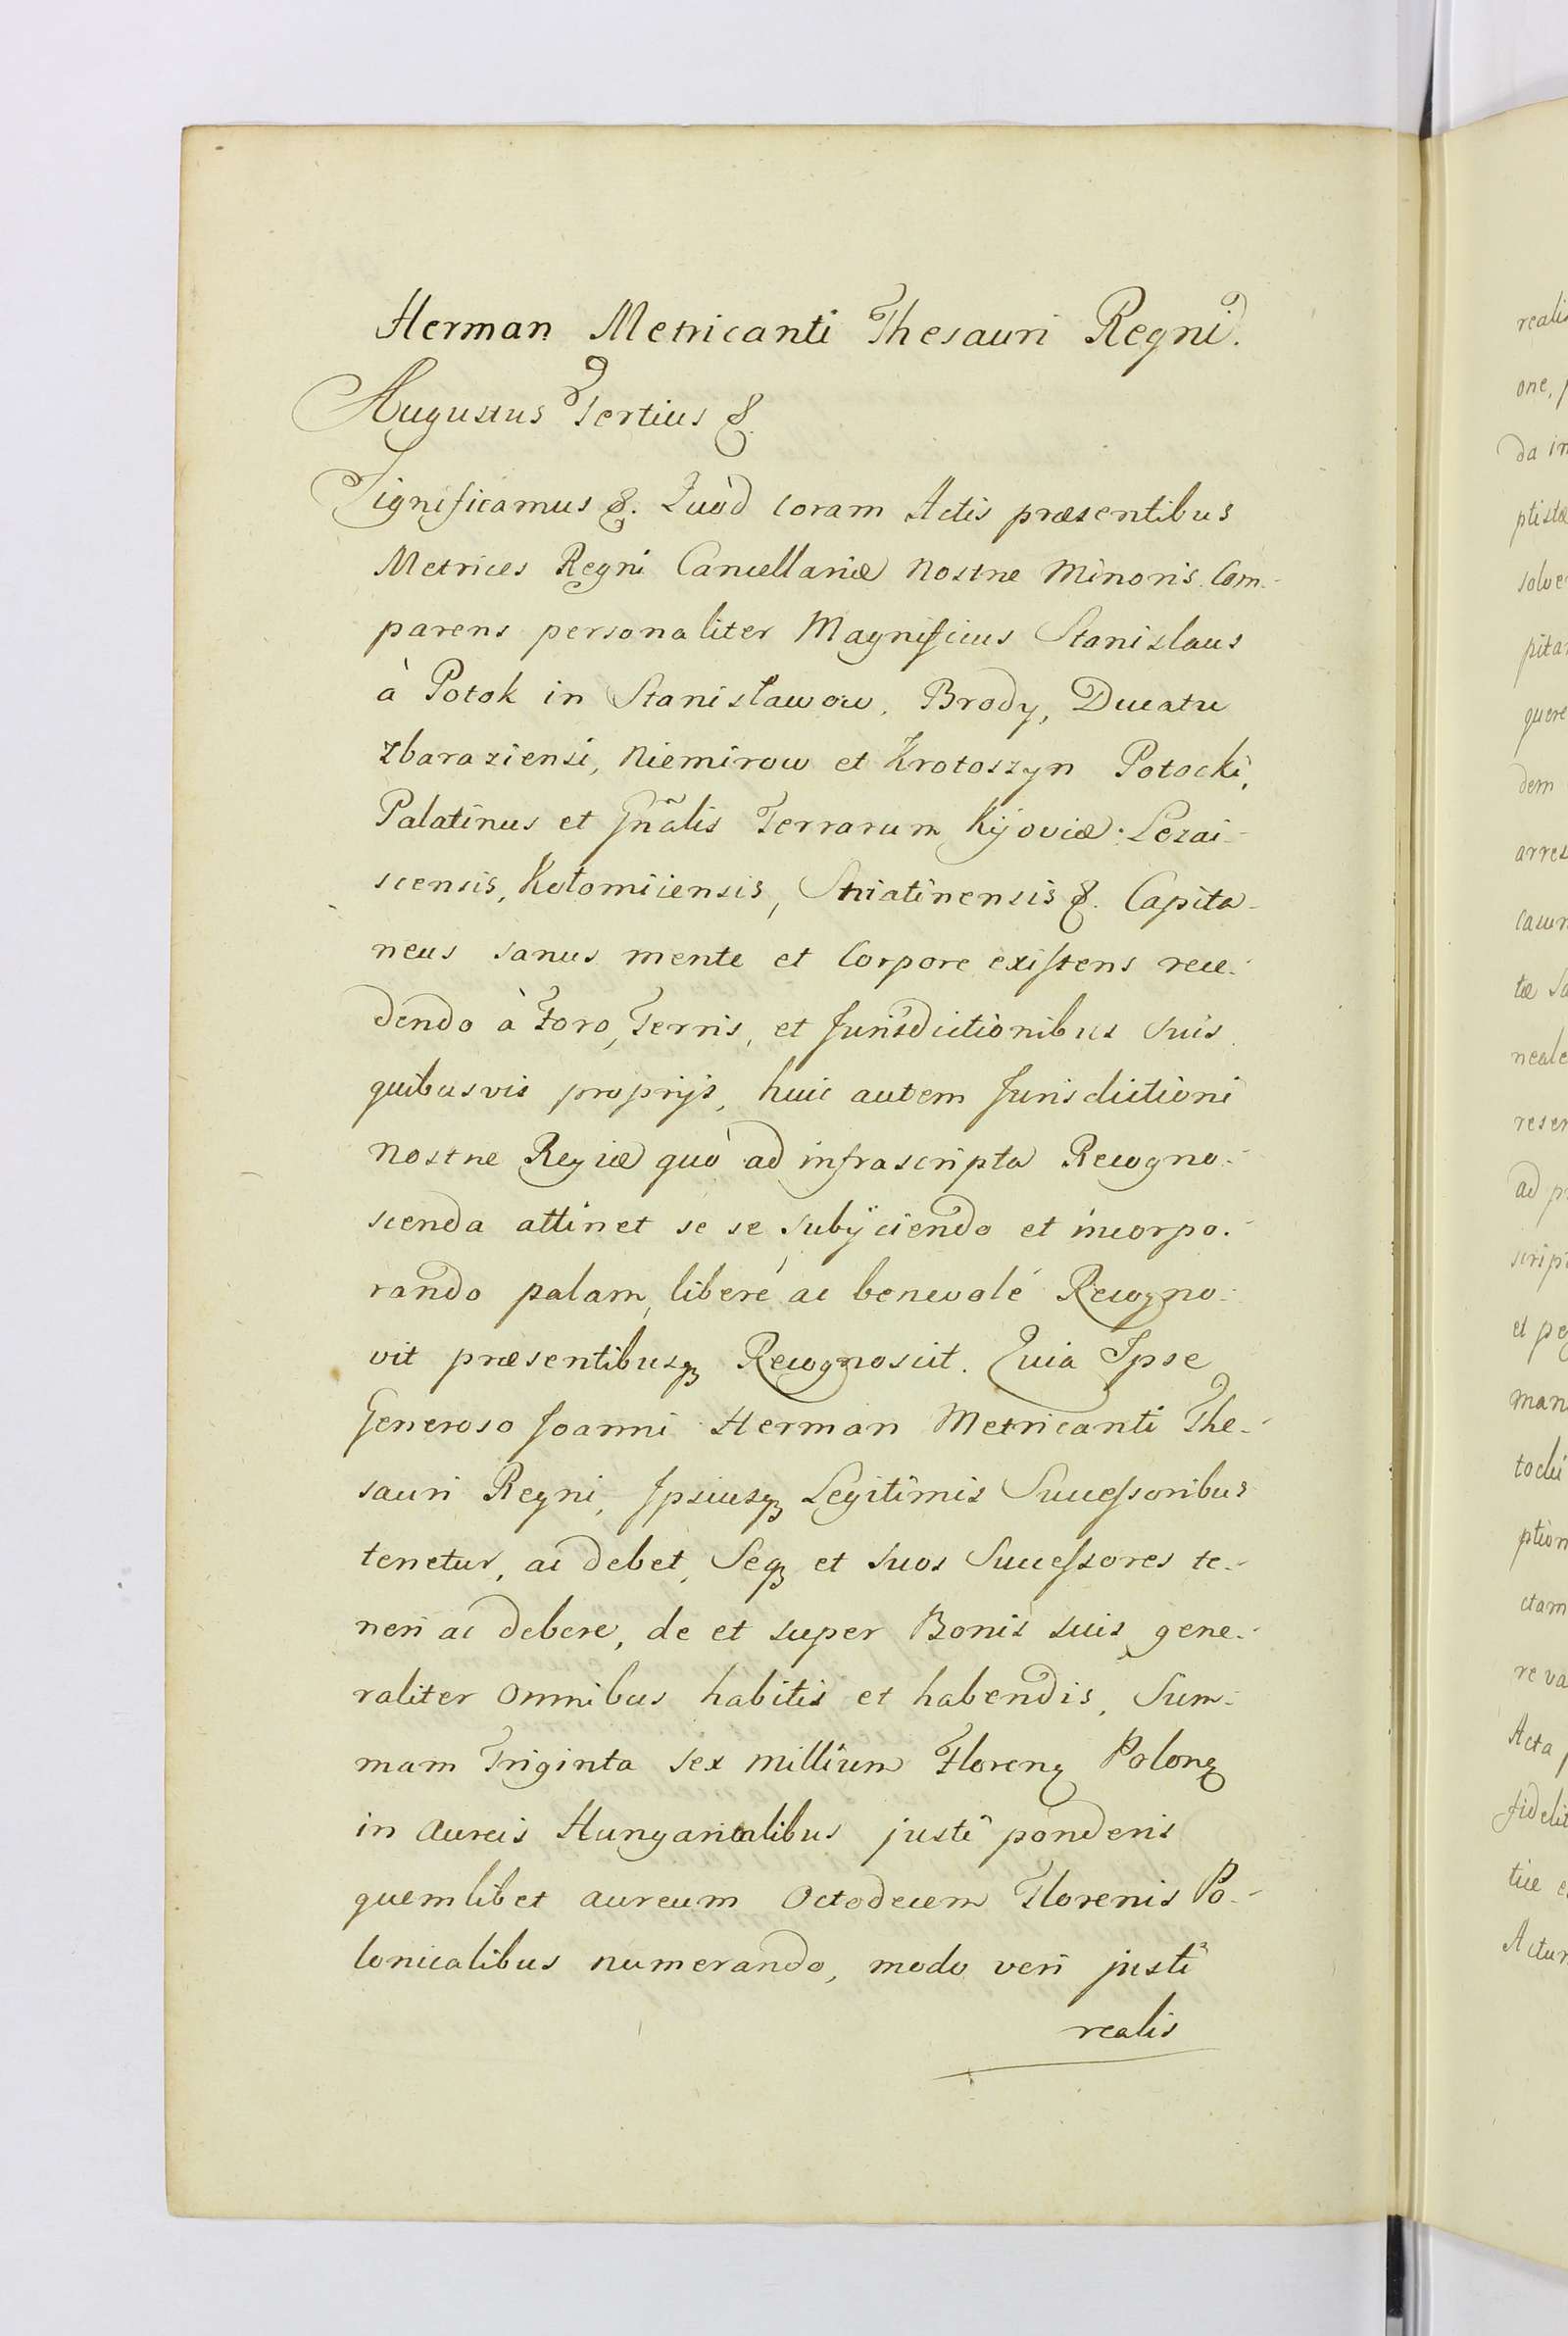 Herman Metricanti Thesauri Regni.
Augustus Tertius &.
Significamus &. Quòd coram Actis præsentibus
Metrices Regni Cancellariæ Nostræ Minoris Com-
parens personaliter Magnificus Stanislaus
à Potok in Stanisławow, Brody, Ducatu
Zbaraziensi, Niemirow et Krotoszyn Potocki,
Palatinus et Gnãlis Terrarum Kijoviæ. Lezai-
scensis, Kołomiiensis, Sniatinensis &. Capita-
neus sanus mente et Corpore existens rece-
dendo à Foro, Terris, et Jurisdictionibus suis
quibusvis proprijs, huic autem Jurisdictioni
Nostræ Regiæ quò ad infrascripta Recogno-
scenda attinet se se subijciendo et incorpo-
rando palam, liberè ac benevolé Recogno-
vit præsentibusq Recognoscit. Quia Ipse
Generoso Joanni Herman Metricanti The-
sauri Regni, Ipsiusq Legitimis Successoribus
tenetur, ac debet, Seq et suos Successores te-
neri ac debere, de et super Bonis suis gene-
raliter Omnibus habitis et habendis, Sum-
mam Triginta Sex Millium Floren Polon
in Aureis Hungaricalibus justi ponderis
quemlibet aureum Octodecem Florenis Po-
lonicalibus numerando, modo veri justi
realis
realis
one,
da in
ptistæ
solve
pita
quere
dem
arres
casu
tæ Sa
neale
reser
ad p
scrip
et pe
man
tocki
ption
ctam
re va
Acta
fidelit
tuæ
Actu